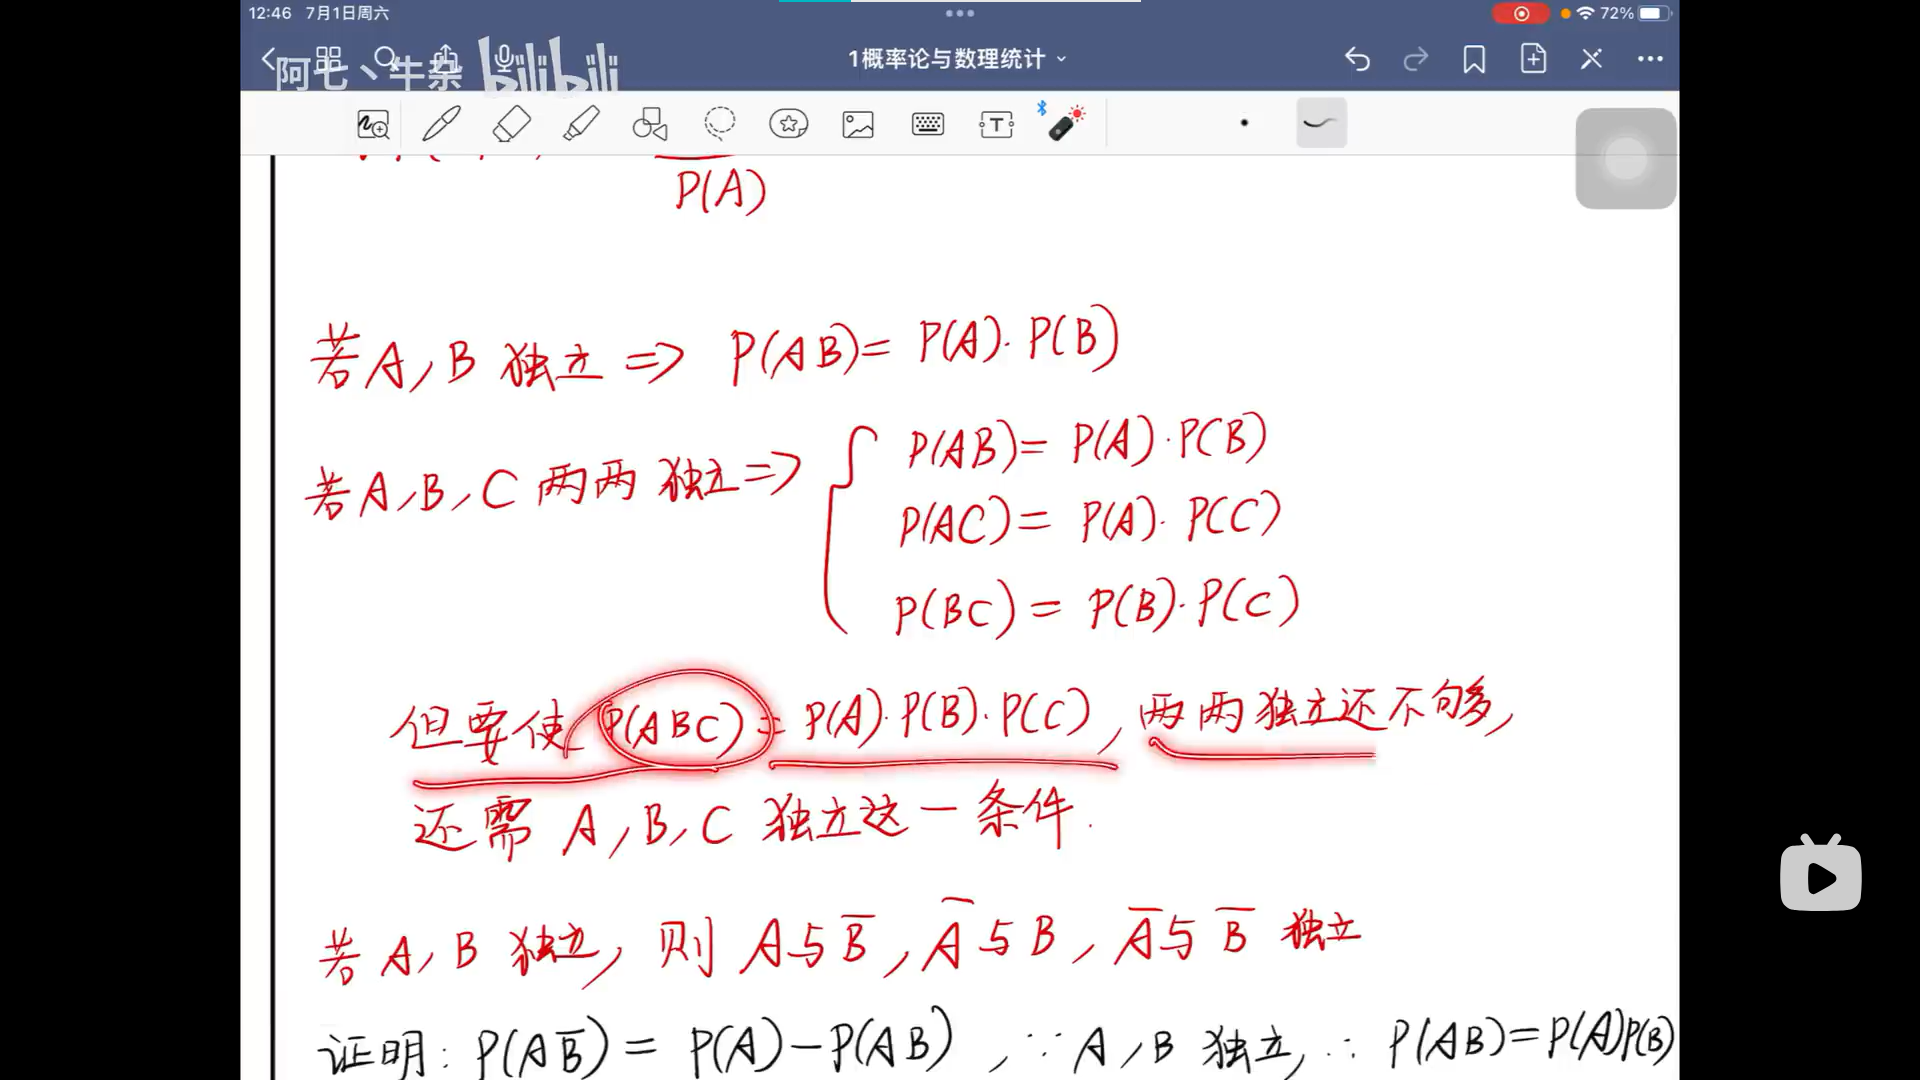 12:46 7月1日周六
72%
阿七丶牛杂 bilibili
1概率论与数理统计
T
P(A)
若A,B 独立 ⇒ P(AB)= P(A)·P(B)
若A,B,C 两两独立 ⇒
P(AB)= P(A)·P(B)
P(AC)= P(A)·P(C)
P(BC)= P(B)·P(C)
但要使 P(ABC)= P(A)·P(B)·P(C), 两两独立还不够,
还需 A,B,C 独立这一条件.
若A,B 独立, 则 A与B̅, A̅与B, A̅与B̅ 独立
证明: P(AB̅)= P(A)-P(AB), ∵A,B 独立, ∴P(AB)=P(A)P(B)